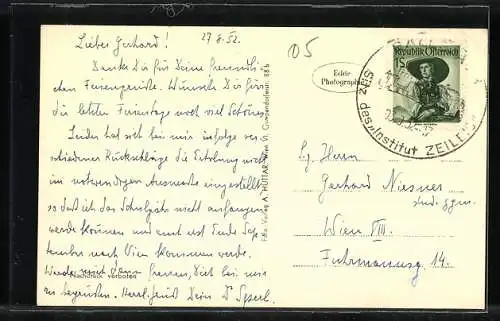 27.8.52.
Lieber Gerhard!
Danke Dir für Deine freundli-
chen Feriengrüsse. Wünsche Dir für
die letzten Ferientage noch viel Schönes.
Leider hat sich bei mir infolge ver-
schiedener Rückschläge die Erholung noch nicht
im notwendigen Ausmasse eingestellt,
so daß ich das Schuljahr nicht anfangen
werde können und erst Ende Sep-
tember nach Wien kommen werde.
Werde mich dann freuen, Dich bei mir
zu begrüßen. Herzl. Dein Dr
Nachdruck verboten
Wien VI, Gumpendorferstr.
05
Echte
Photographie
Republik Österreich
1S
des "Institut ZEILE
Hg. Herrn
Gerhard Niesner
stud. gym.
Wien VIII.
Fuhrmannsg. 14.